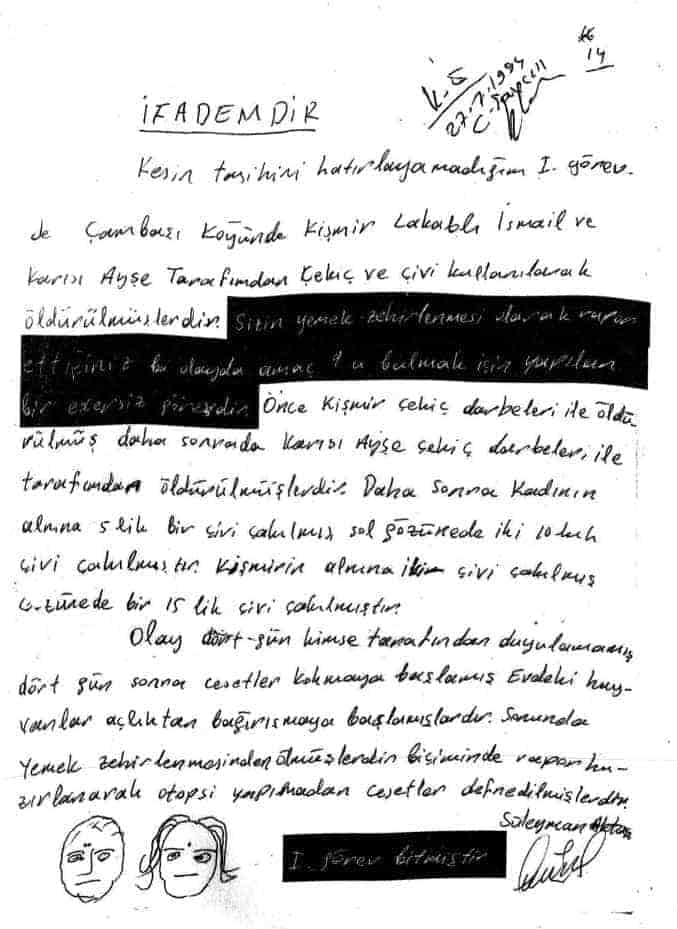 16
14
K.S
27.7.1994
C. Savcısı
İFADEMDİR
Kesin tarihini hatırlayamadığım I. görev.
de Çambaşı Köyünde Kişmir Lakablı İsmail ve
Karısı Ayşe Tarafından Çekiç ve Çivi kullanılarak
öldürülmüşlerdir. Sizin yemek zehirlenmesi olarak rapor
ettiğiniz bu olayda amaç 9 u bulmak için yapılan
bir exersiz görevdir. Önce Kişmir çekiç darbeleri ile öldü
rülmüş daha sonrada karısı Ayşe çekiç darbeleri ile
tarafımdan öldürülmüşlerdir. Daha sonra Kadının
alnına 5 lik bir çivi çakılmış sol gözünede iki 10 luk
çivi çakılmıştır. Kişmirin alnına iki çivi çakılmış
gözünede bir 15 lik çivi çakılmıştır.
Olay dört gün kimse tarafından duyulamamış
dört gün sonra cesetler kokmaya başlamış Evdeki hay-
vanlar açlıktan bağırışmaya başlamışlardır. Sonunda
Yemek zehirlenmesinden ölmüşlerdir biçiminde rapor ha-
zırlanarak otopsi yapılmadan cesetler defnedilmişlerdir.
Süleyman Aktaş
I. görev bitmiştir